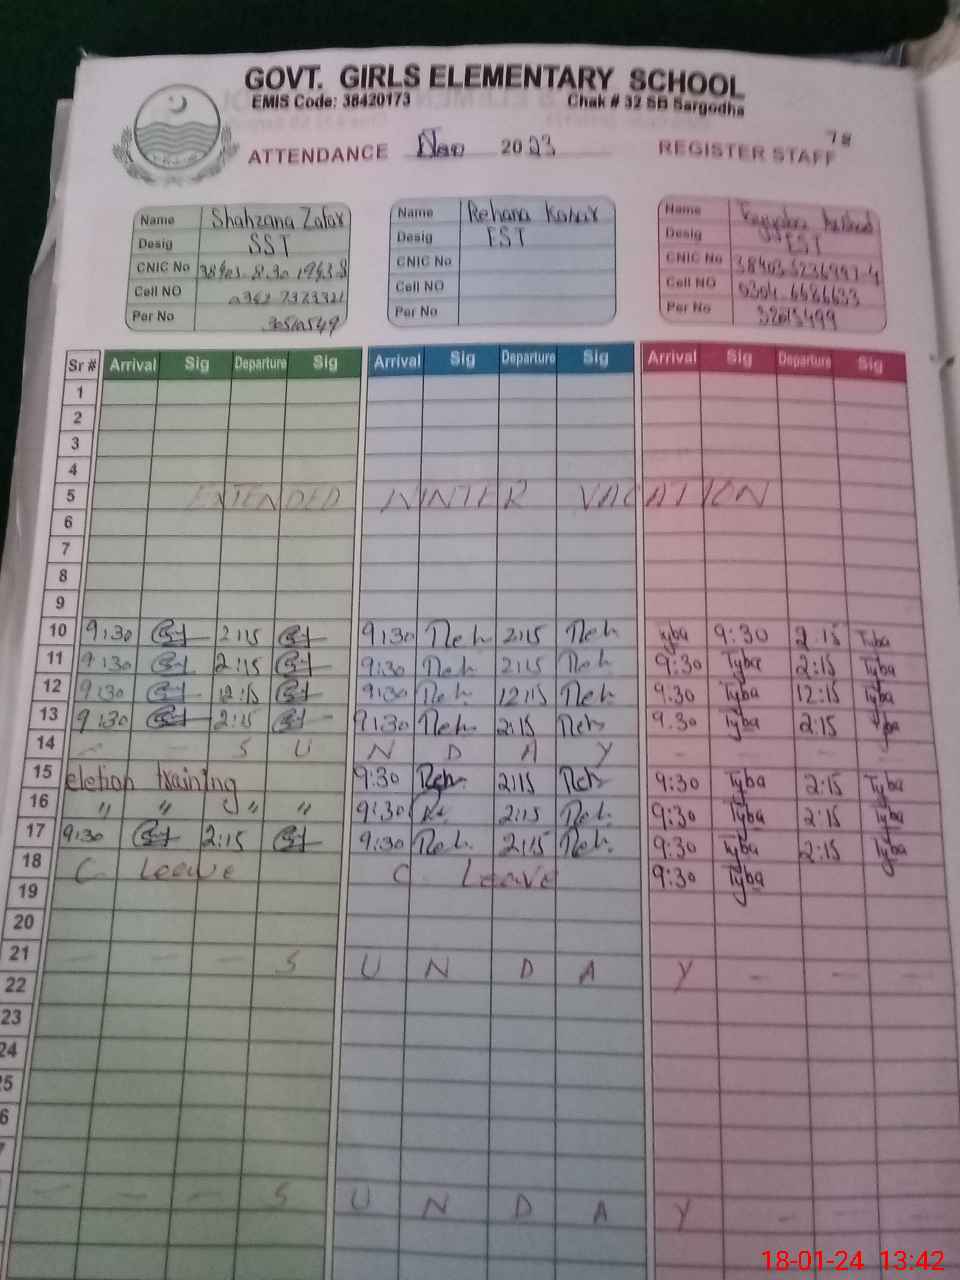 GOVT. GIRLS ELEMENTARY SCHOOL
EMIS Code: 38420173 Chak # 32 SB Sargodha
ATTENDANCE 2023 REGISTER STAFF 78
Name Shahzana Zafar Name Rehana Kosar Name
Desig SST Desig EST Desig EST
CNIC No CNIC No CNIC No
Cell NO Cell NO Cell NO
Per No Per No Per No 32015499
Sr # Arrival Sig Departure Sig Arrival Sig Departure Sig Arrival Sig Departure Sig
1
2
3
4
5 EXTENDED WINTER VACATION
6
7
8
9
10 9:30 2:15 9:30 Reh 2:15 Reh Tyba 9:30 2:15 Tyba
11 9:30 2:15 9:30 Reh 2:15 Reh 9:30 Tyba 2:15 Tyba
12 9:30 12:15 9:30 Reh 12:15 Reh 9:30 Tyba 12:15 Tyba
13 9:30 2:15 9:30 Reh 2:15 Reh 9:30 Tyba 2:15 Tyba
14 - - S U N D A Y - - - -
15 eletion training 9:30 Reh 2:15 Reh 9:30 Tyba 2:15 Tyba
16 " " " " 9:30 Re. 2:15 Reh 9:30 Tyba 2:15 Tyba
17 9:30 2:15 9:30 Reh 2:15 Reh. 9:30 Tyba 2:15 Tyba
18 C. Leave C. Leave 9:30 Tyba
19
20
21 - - - S U N D A Y - - -
22
23
24
- - - S U N D A Y - - -
18-01-24 13:42